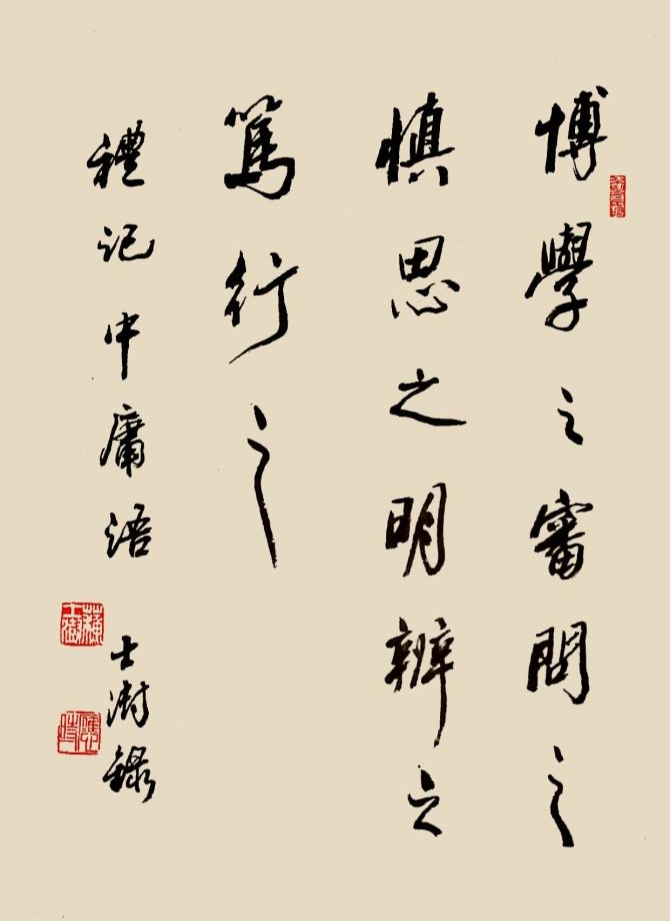 博學之審問之
慎思之明辨之
篤行之
禮記中庸語 士澍錄